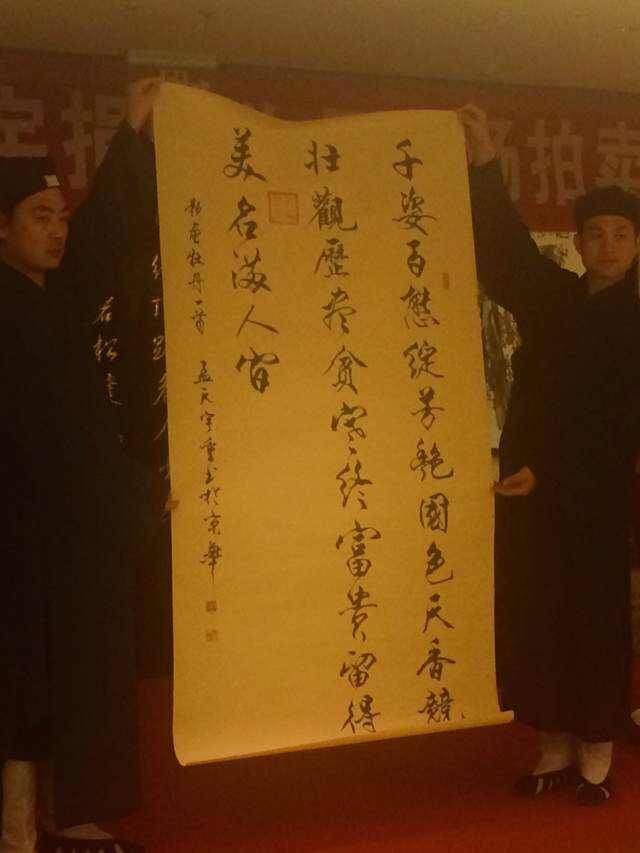 捐
场拍卖
千姿百態綻芳艷國色天香競
壯觀歷盡貧寒終富貴留得
美名滿人間
牡丹一首 孟天宇重书於京華